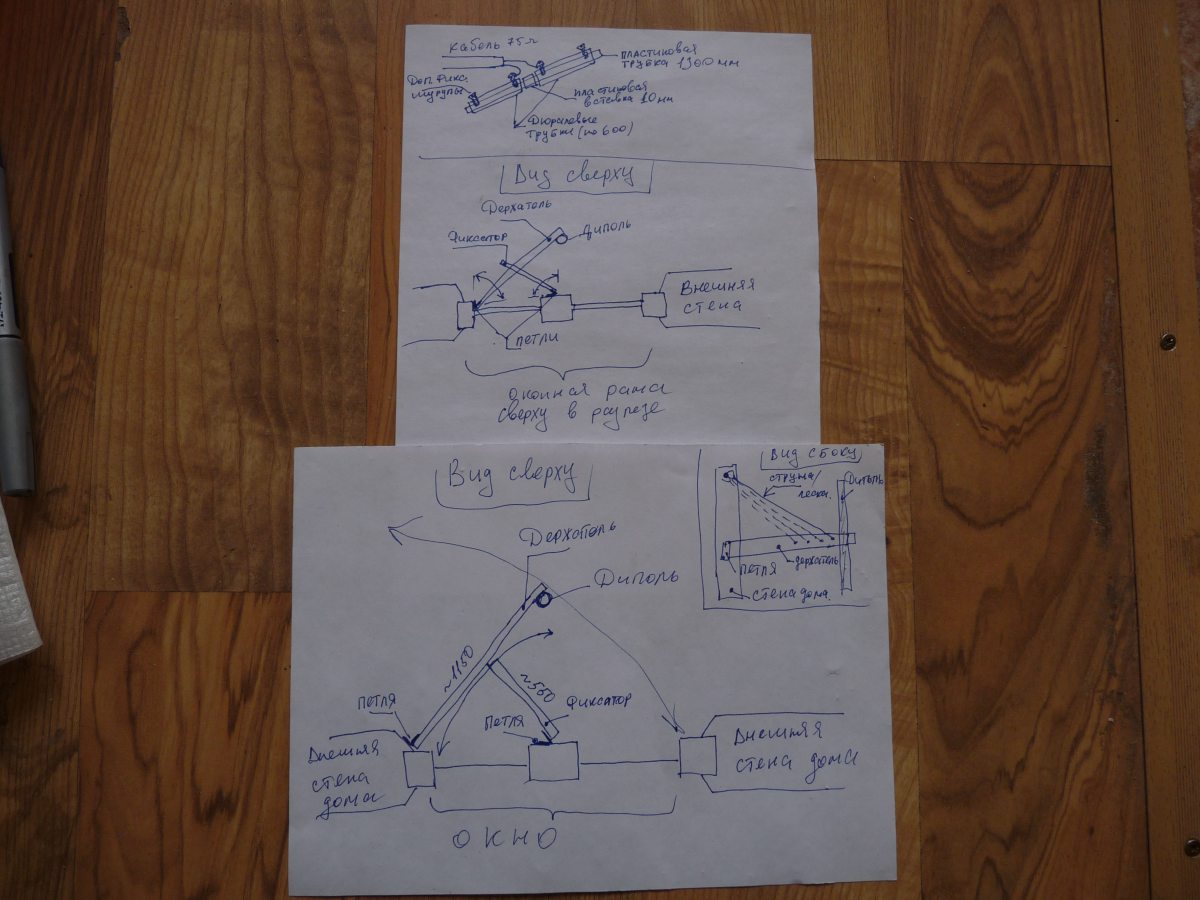 кабель 75 л
пластиковая
трубка 1300 мм
Доп. фикс.
шурупы
пластиковая
вставка 10 мм
Дюралевые
трубки (по 600)
Вид сверху
Держатель
Фиксатор
Диполь
Внешняя
стена
петли
оконная рама
сверху в разрезе
Вид сверху
Вид сбоку
струна/
леска
Диполь
Петля
держатель
стена дома
Держатель
Диполь
~1150
~550
Петля
Петля
Фиксатор
Внешняя
стена
дома
Внешняя
стена дома
окно